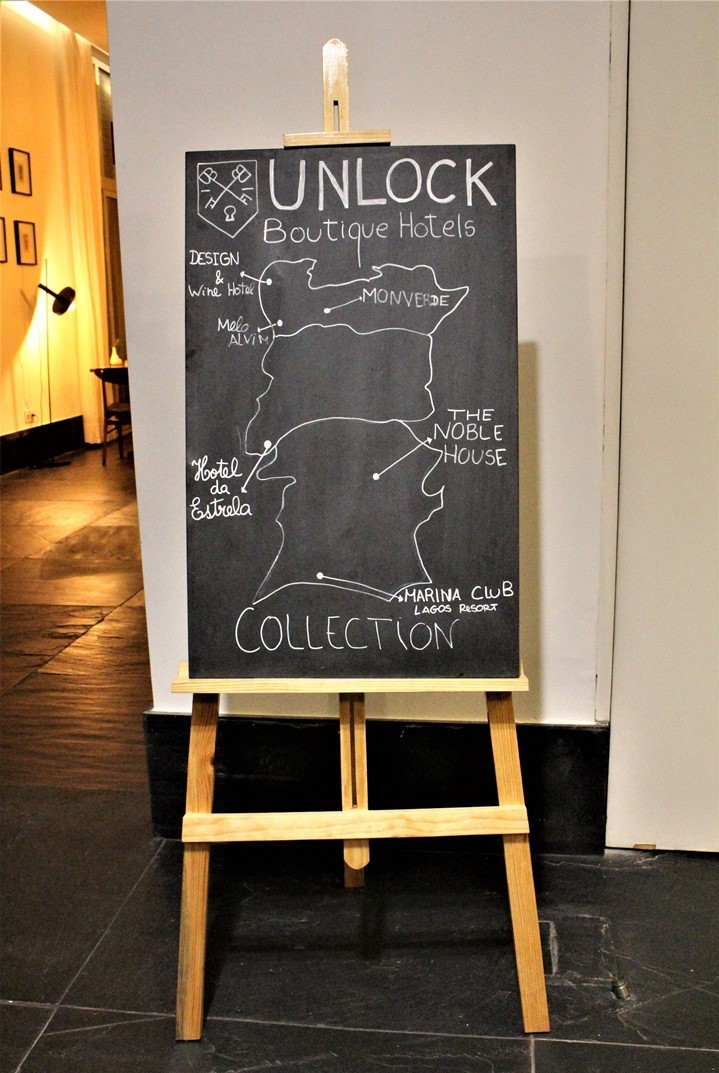 UNLOCK
Boutique Hotels
DESIGN
&
Wine Hotel
MONVERDE
Melo
ALVIM
THE
NOBLE
HOUSE
Hotel
da
Estrela
MARINA CLUB
LAGOS RESORT
COLLECTION